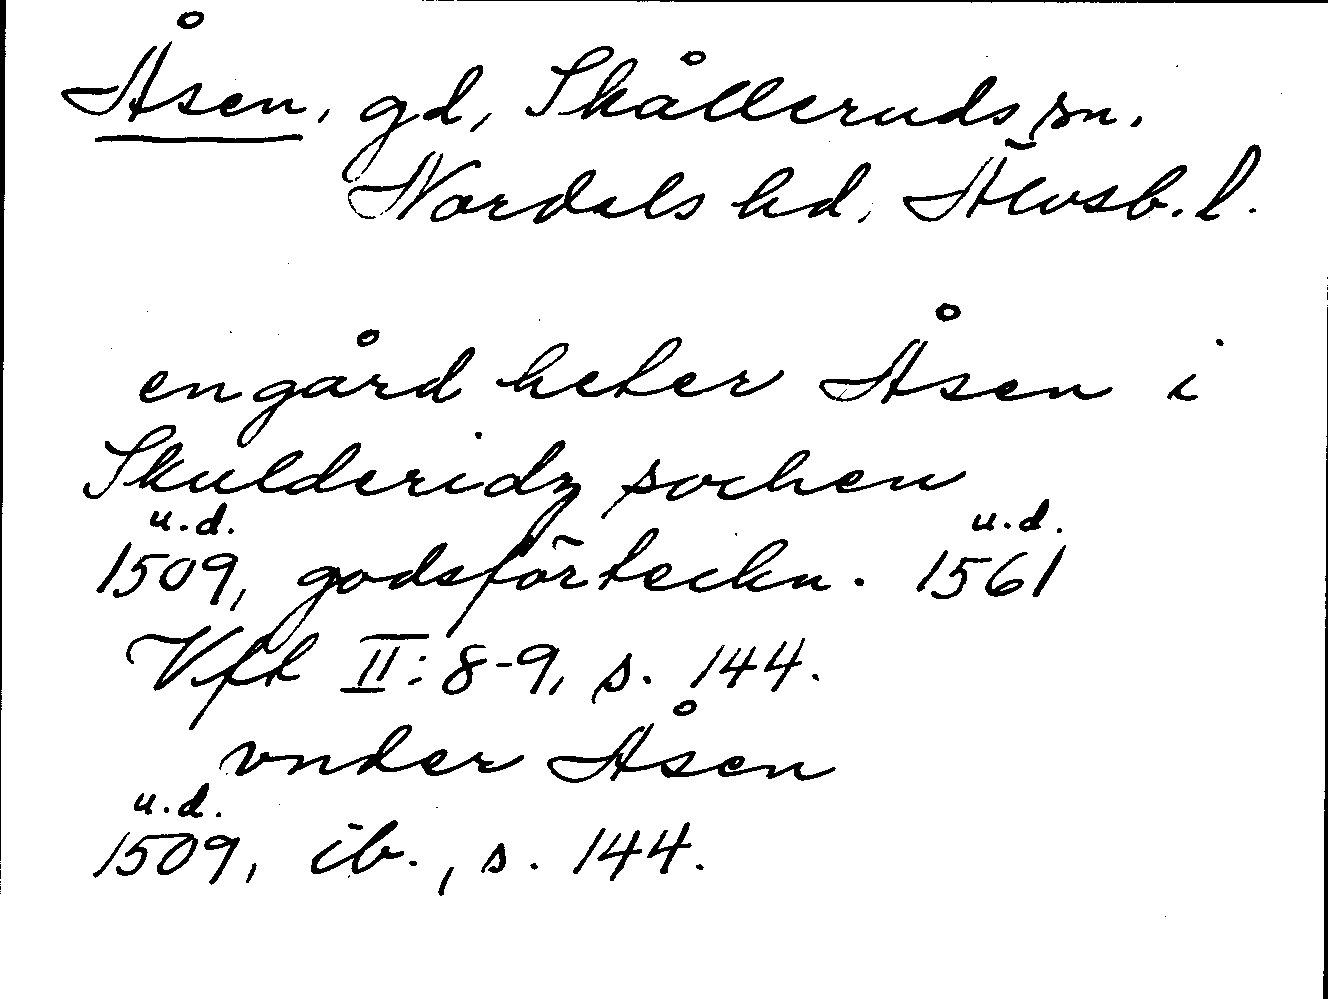 Åsen, gd, Skålleruds sn.
Nordals hd, Älvsb. l.
en gård heter Åsen i
Skulderidz sochen
u.d. u.d.
1509, godsförteckn. 1561
Vft II: 8-9, s. 144.
vnder Åsen
u.d.
1509, ib., s. 144.